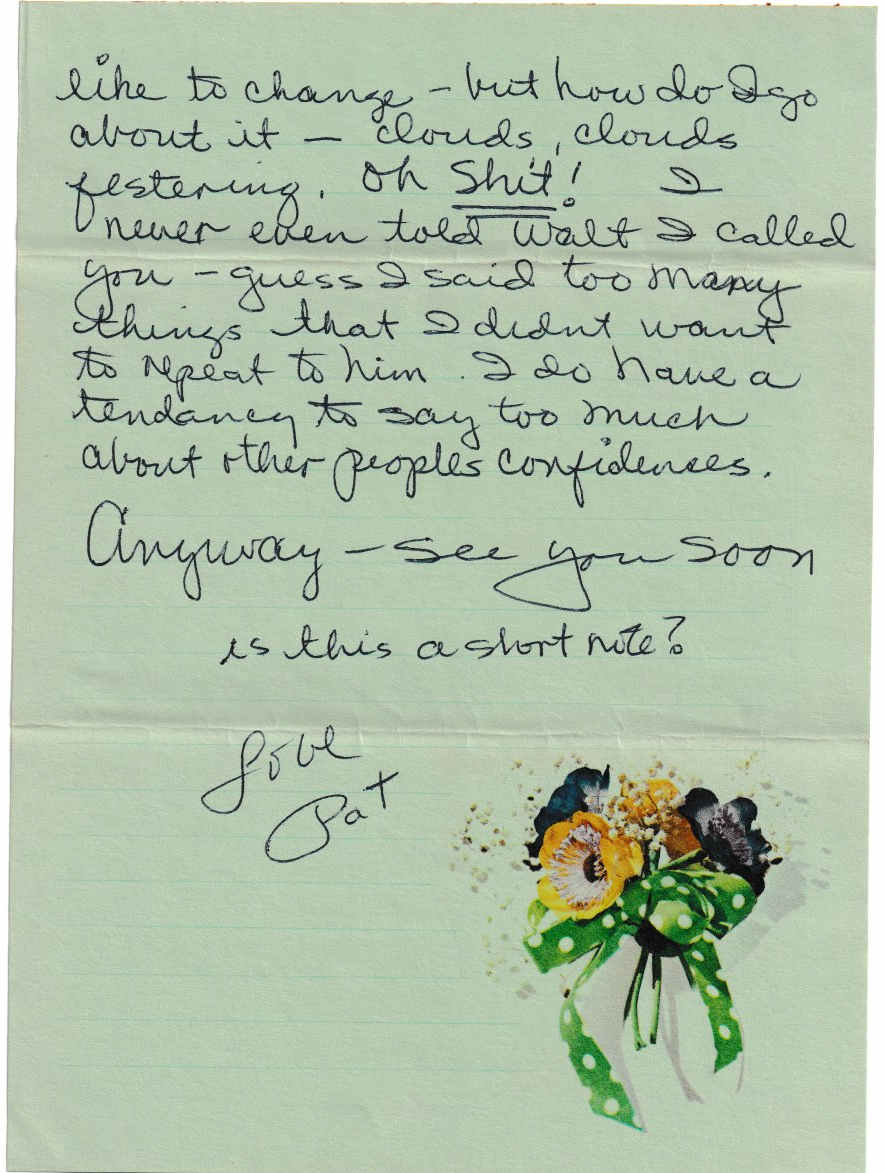 like to change - but how do I go
about it — clouds, clouds
festering. Oh Shit! I
never even told Walt I called
you - guess I said too many
things that I didnt want
to repeat to him. I do have a
tendancy to say too much
about other peoples confidences.
Anyway - see you soon
is this a short note?
Love
Pat